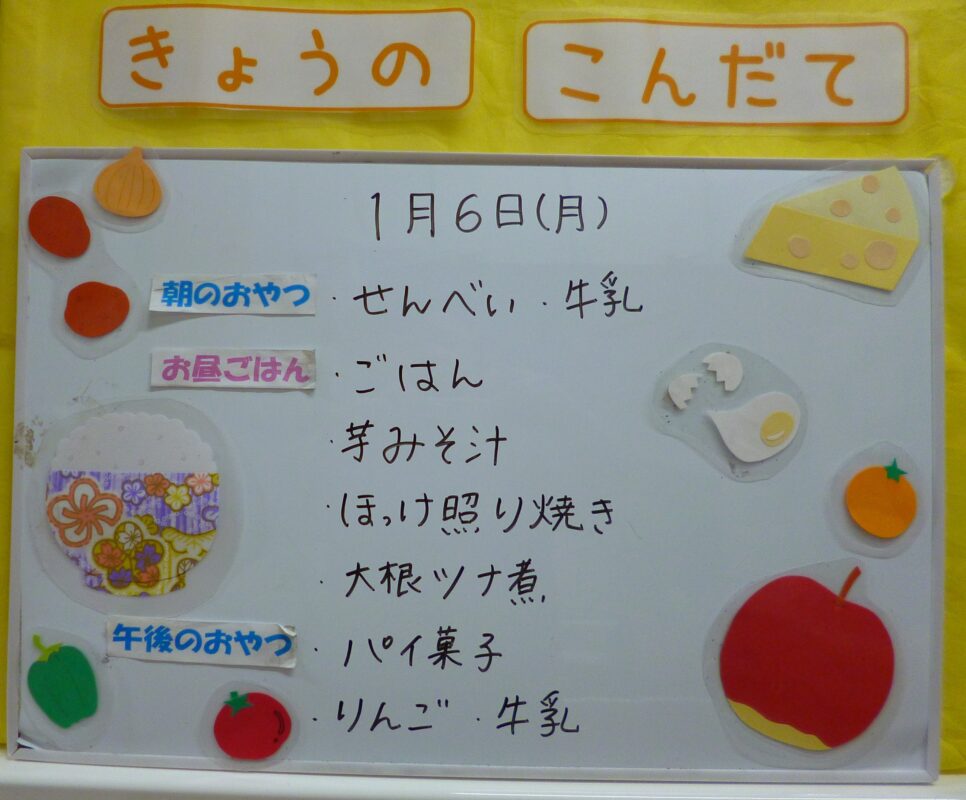 きょうの こんだて
1月6日(月)
朝のおやつ ・せんべい ・牛乳
お昼ごはん ・ごはん
・芋みそ汁
・ほっけ照り焼き
・大根ツナ煮
午後のおやつ ・パイ菓子
・りんご ・牛乳